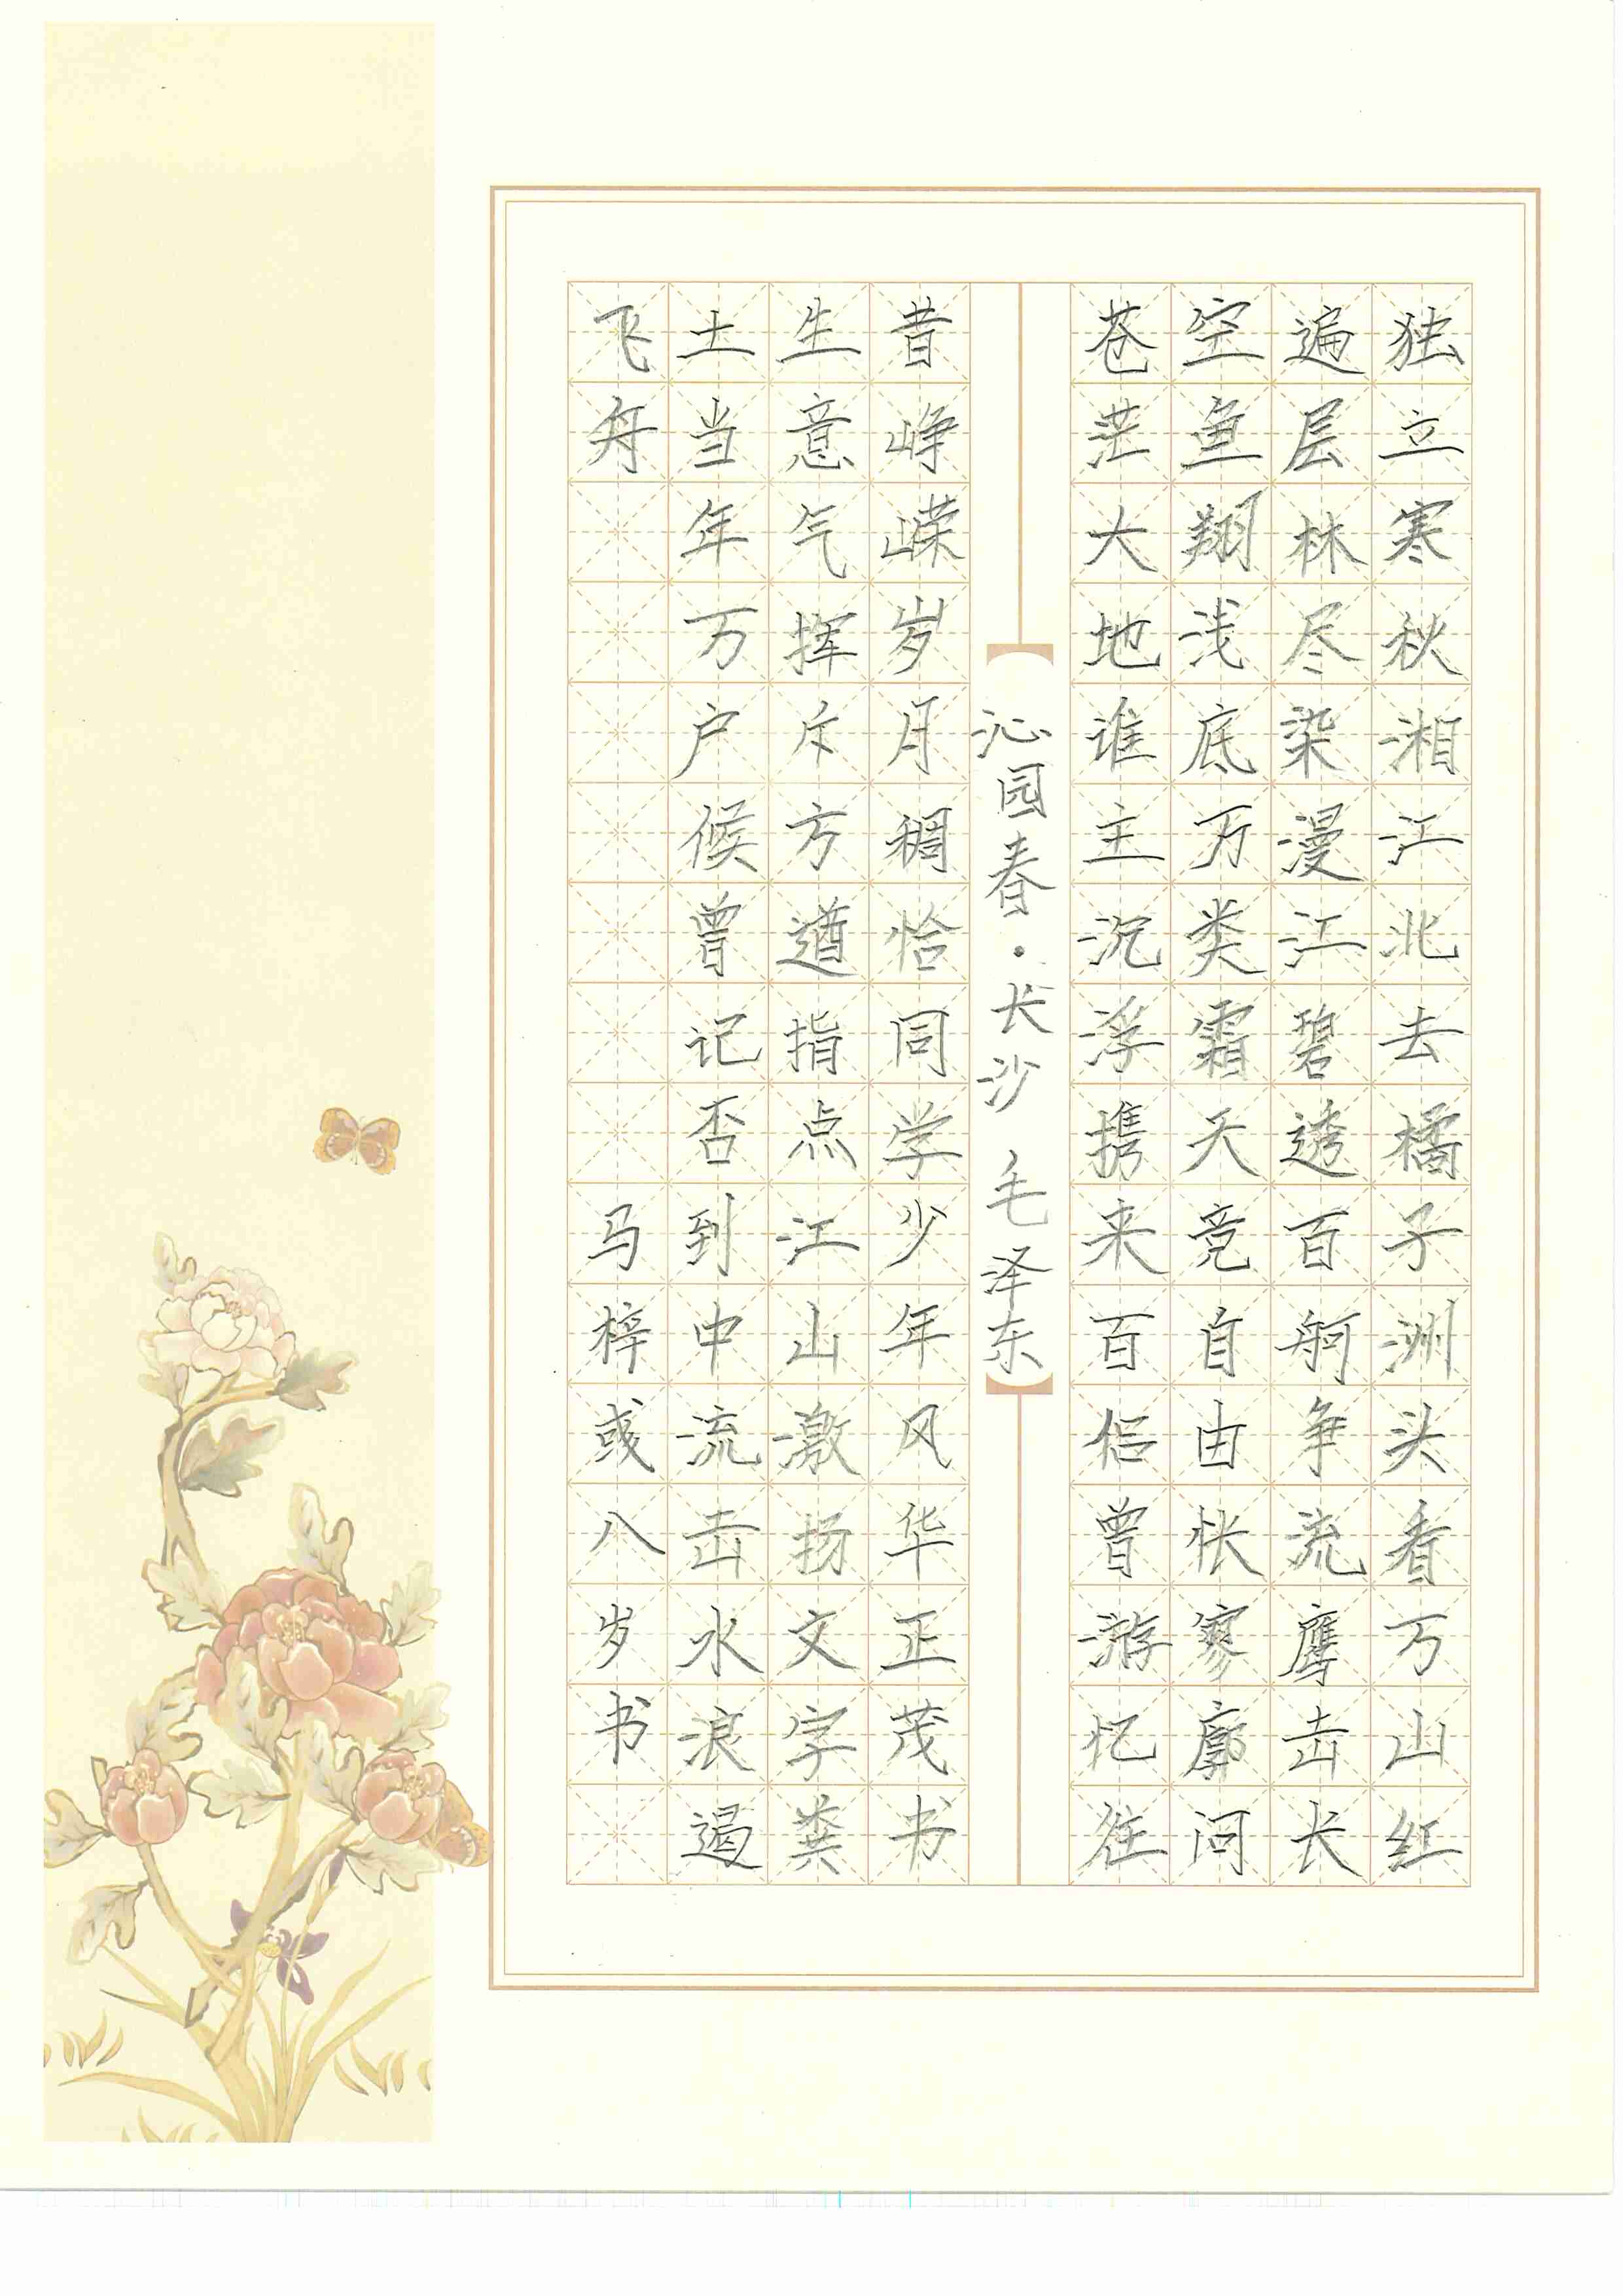 独立寒秋湘江北去橘子洲头看万山红
遍层林尽染漫江碧透百舸争流鹰击长
空鱼翔浅底万类霜天竞自由怅寥廓问
苍茫大地谁主沉浮携来百侣曾游忆往
沁园春·长沙 毛泽东
昔峥嵘岁月稠恰同学少年风华正茂书
生意气挥斥方遒指点江山激扬文字粪
土当年万户候曾记否到中流击水浪遏
飞舟 马梓彧八岁书